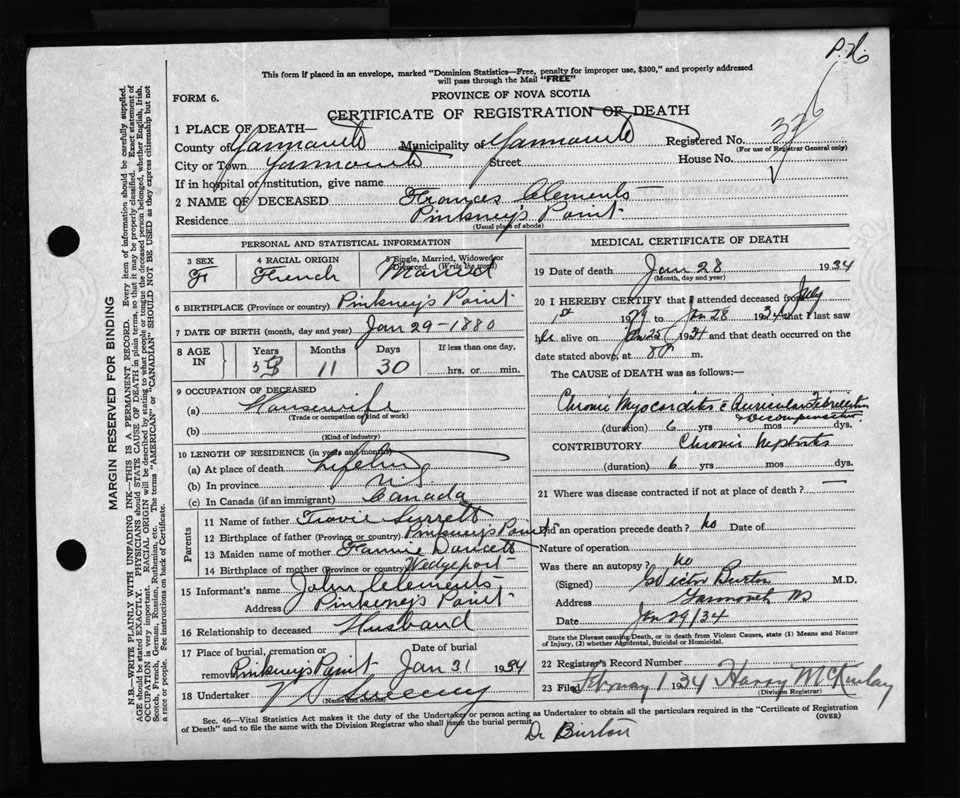 P. H.
This form if placed in an envelope, marked "Dominion Statistics—Free, penalty for improper use, $300," and properly addressed
will pass through the Mail "FREE"
FORM 6.
PROVINCE OF NOVA SCOTIA
CERTIFICATE OF REGISTRATION OF DEATH
1 PLACE OF DEATH—
County of Yarmouth Municipality of Yarmouth Registered No. 326
(For use of Registrar General only)
City or Town Yarmouth Street House No.
If in hospital or institution, give name
2 NAME OF DECEASED Frances Clements
Residence Pinkney's Point
(Usual place of abode)
PERSONAL AND STATISTICAL INFORMATION
3 SEX 4 RACIAL ORIGIN 5 Single, Married, Widowed or Divorced. (Write the word)
F French Married
6 BIRTHPLACE (Province or country) Pinkney's Point
7 DATE OF BIRTH (month, day and year) Jan 29-1880
8 AGE IN Years Months Days If less than one day.
53 11 30 hrs. or min.
9 OCCUPATION OF DECEASED
(a) Housewife
(Trade or occupation or kind of work)
(b)
(Kind of industry)
10 LENGTH OF RESIDENCE (in years and months)
(a) At place of death Lifetime
(b) In province NS
(c) In Canada (if an immigrant) Canada
Parents
11 Name of father Surrett
12 Birthplace of father (Province or country) Pinkney's Point
13 Maiden name of mother Fannie Doucett
14 Birthplace of mother (Province or country) Wedgeport
15 Informant's name John Clements
Address Pinkney's Point
16 Relationship to deceased Husband
17 Place of burial, cremation or removal Pinkney's Point Date of burial Jan 31 1934
18 Undertaker V Sweeny
(Name and address)
MEDICAL CERTIFICATE OF DEATH
19 Date of death Jan 28 1934
(Month, day and year)
20 I HEREBY CERTIFY that I attended deceased from July
1st 1929 to Jan 28 1934 that I last saw
her alive on Jan 25 1934 and that death occurred on the
date stated above, at 8 P m.
The CAUSE of DEATH was as follows:—
Chronic Myocarditis c Auricular Fibrillation
& Decompensation
(duration) 6 yrs mos dys.
CONTRIBUTORY Chronic Nephritis
(duration) 6 yrs mos dys.
21 Where was disease contracted if not at place of death?
Did an operation precede death? no Date of
Nature of operation
Was there an autopsy? no
(Signed) Victor Burton M.D.
Address Yarmouth NS
Date Jan 29/34
State the Disease causing Death, or in death from Violent Causes, state (1) Means and Nature
of Injury, (2) whether Accidental, Suicidal or Homicidal.
22 Registrar's Record Number
23 Filed February 1 1934 Harry McKinlay
(Division Registrar)
Sec. 46—Vital Statistics Act makes it the duty of the Undertaker or person acting as Undertaker to obtain all the particulars required in the "Certificate of Registration
of Death" and to file the same with the Division Registrar who shall issue the burial permit.
(OVER)
Dr Burton
MARGIN RESERVED FOR BINDING
N.B.—WRITE PLAINLY WITH UNFADING INK—THIS IS A PERMANENT RECORD. Every item of information should be carefully supplied.
AGE should be stated EXACTLY. PHYSICIANS should STATE CAUSE OF DEATH in plain terms, so that it may be properly classified. Exact statement of
OCCUPATION is very important. RACIAL ORIGIN will be described by stating to what people or tongue the deceased person belonged, whether English, Irish,
Scotch, French, German, Russian, Ruthenian, etc. The terms "AMERICAN" or "CANADIAN" SHOULD NOT BE USED as they express citizenship but not
a race or people. See instructions on back of Certificate.